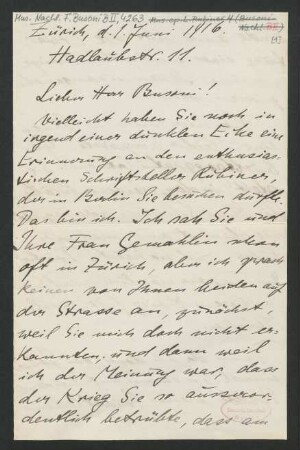 Mus. Nachl. F. Busoni B II, 4263
Zürich, d. 1. Juni 1916.
Hadlaubstr. 11.
Lieber Herr Busoni!
Vielleicht haben Sie noch in
irgend einer dunklen Ecke eine
Erinnerung an den enthusias-
tischen Schriftsteller Rubiner,
der in Berlin Sie besuchen durfte.
Das bin ich. Ich sah Sie und
Ihre Frau Gemahlin schon
oft in Zürich, aber ich sprach
keinen von Ihnen beiden auf
der Strasse an, zunächst,
weil Sie mich doch nicht er-
kannten, und dann weil
ich der Meinung war, dass
der Krieg Sie so ausseror-
dentlich betrübte, dass am